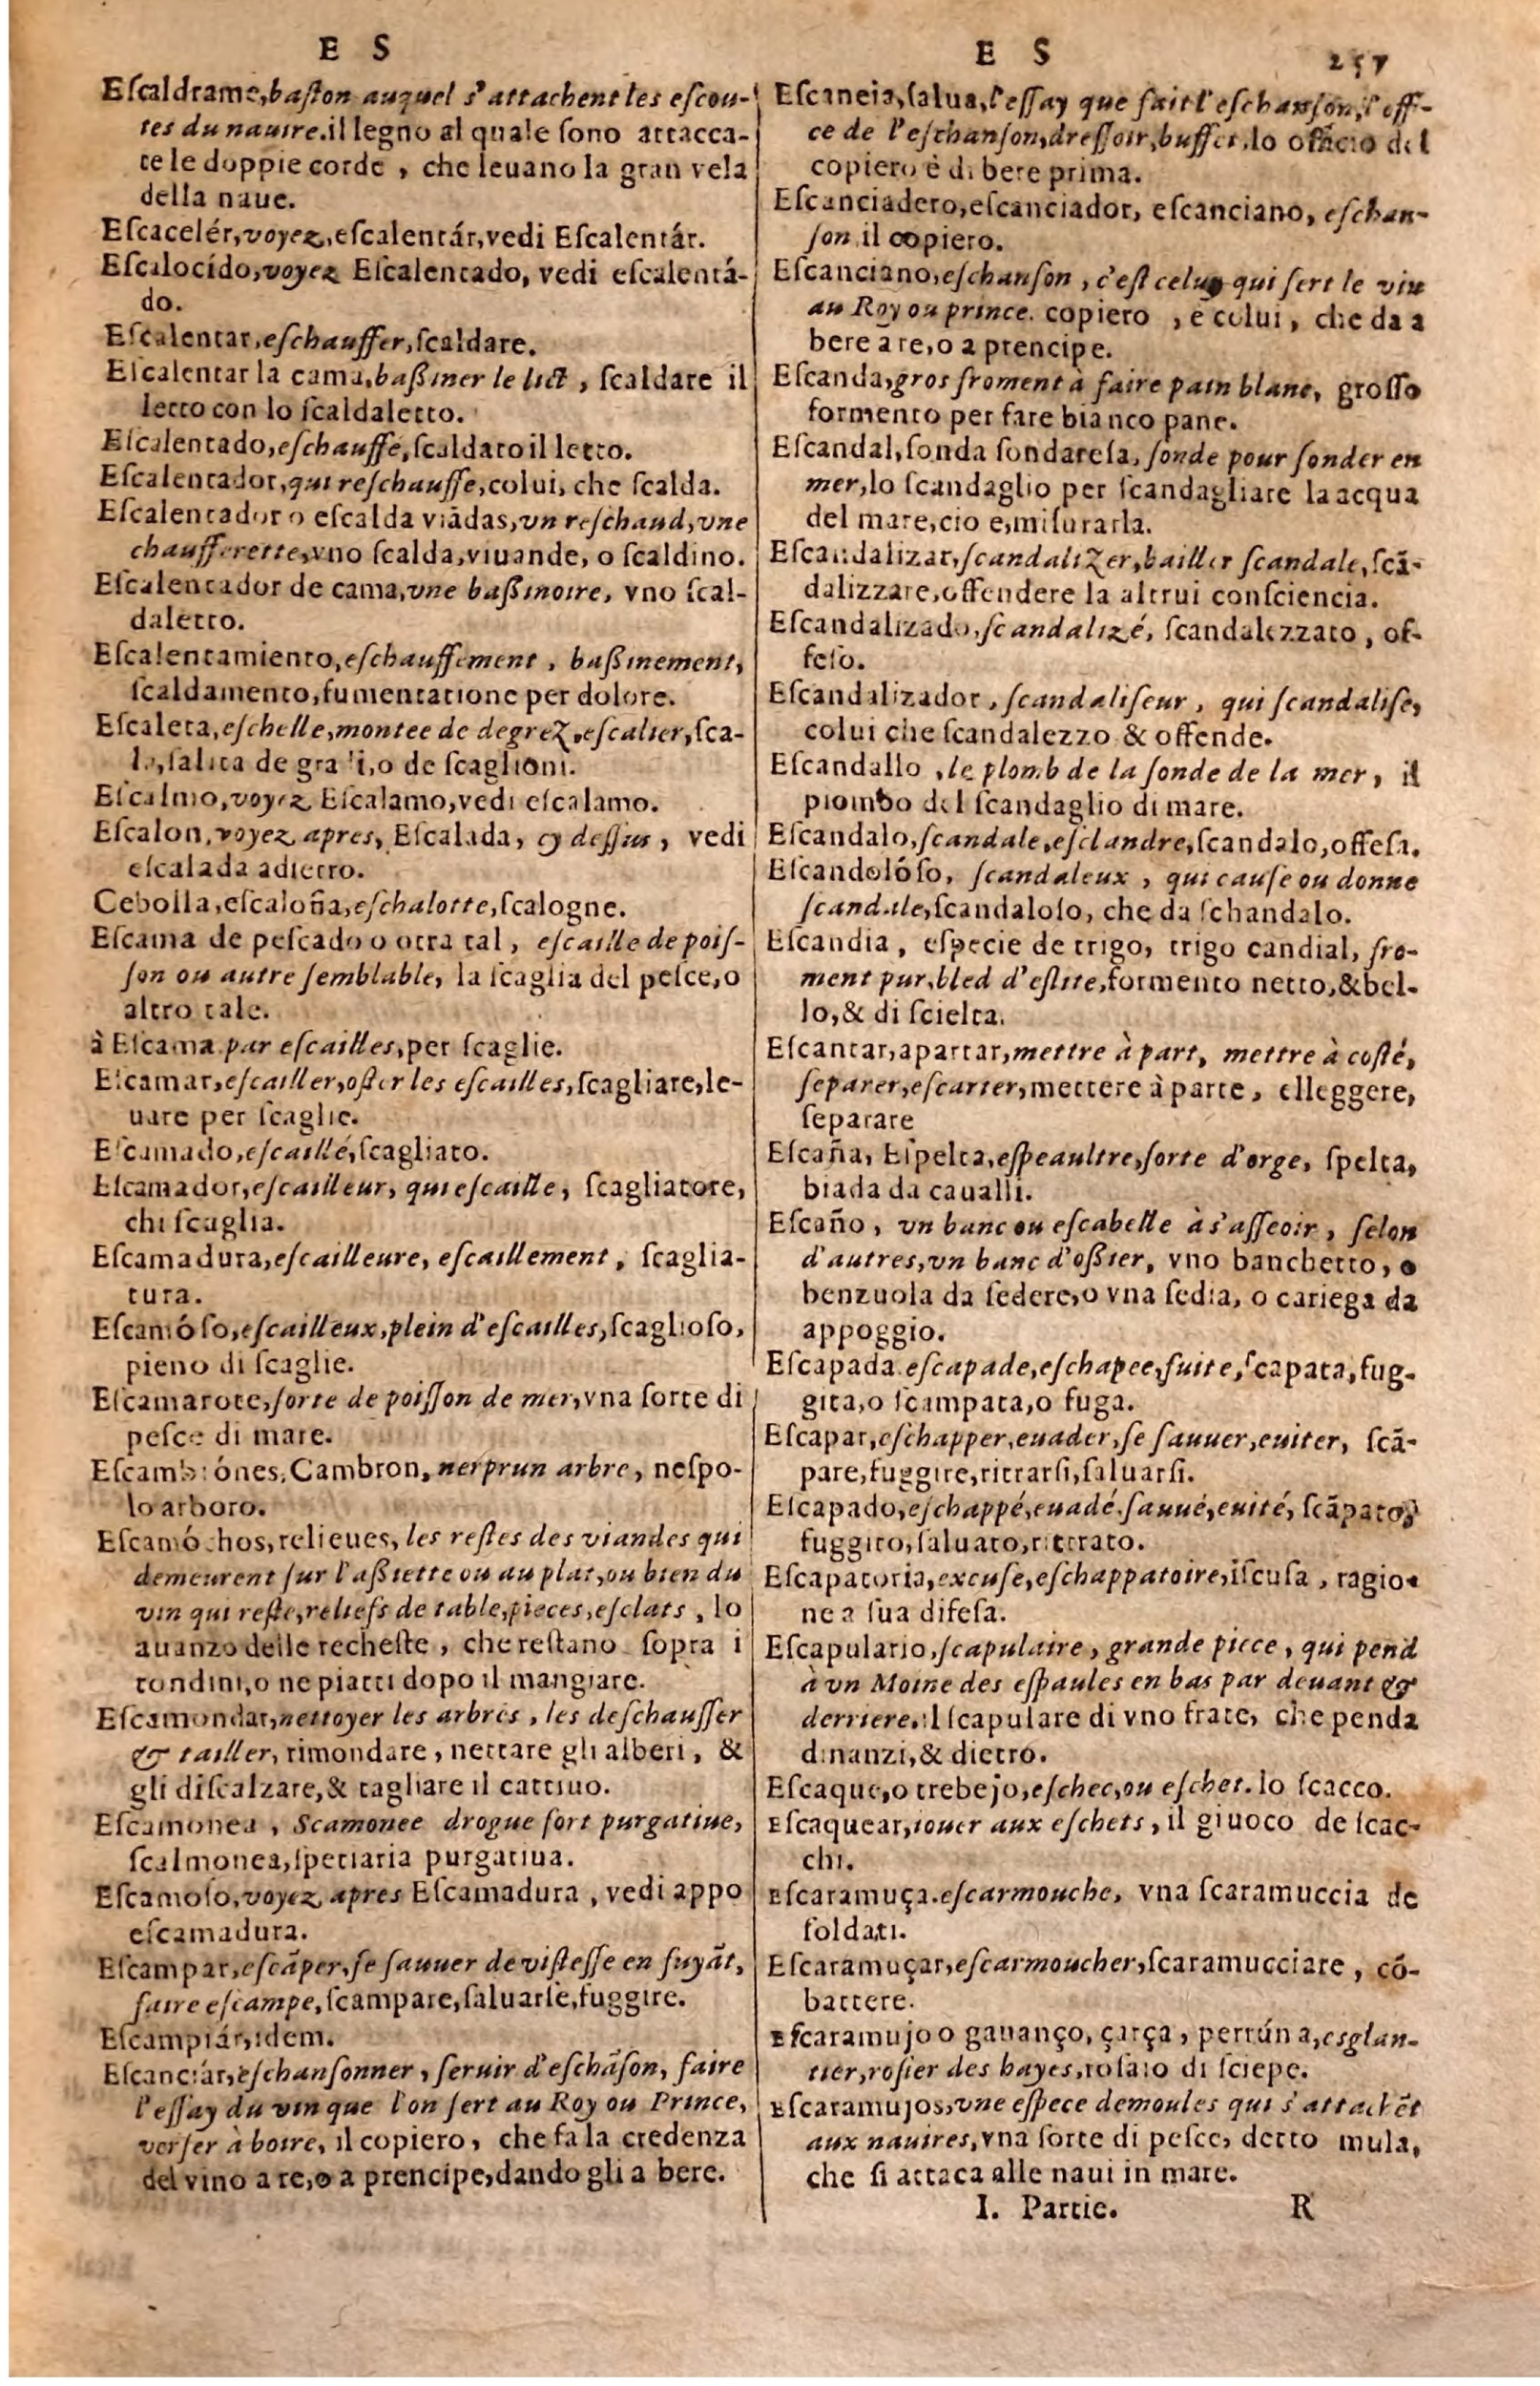 E S
Eſcaldrame, baſton auquel s'attachent les eſcou-
tes du nauire. il legno al quale ſono attacca-
te le doppie corde, che leuano la gran vela
della naue.
Eſcacelér, voyez, eſcalentár, vedi Eſcalentár.
Eſcalocído, voyez Eſcalentado, vedi eſcalentá-
do.
Eſcalentar, eſchauffer, ſcaldare.
Eſcalentar la cama, baßiner le lict, ſcaldare il
letto con lo ſcaldaletto.
Eſcalentado, eſchauffé, ſcaldato il letto.
Eſcalentador, qui reſchauffe, colui, che ſcalda.
Eſcalentador o eſcalda viãdas, vn reſchaud, vne
chaufferette, vno ſcalda, viuande, o ſcaldino.
Eſcalentador de cama, vne baßinoire, vno ſcal-
daletto.
Eſcalentamiento, eſchauffement, baßinement,
ſcaldamento, fumentatione per dolore.
Eſcaleta, eſchelle, montee de degrez, eſcalier, ſca-
la, ſalita de gradi, o de ſcaglioni.
Eſcalmo, voyez Eſcalamo, vedi eſcalamo.
Eſcalon, voyez apres, Eſcalada, cy deſſus, vedi
eſcalada adietro.
Cebolla, eſcaloña, eſchalotte, ſcalogne.
Eſcama de peſcado o otra tal, eſcaille de poiſ-
ſon ou autre ſemblable, la ſcaglia del peſce, o
altro tale.
à Eſcama par eſcailles, per ſcaglie.
Eſcamar, eſcailler, oſter les eſcailles, ſcagliare, le-
uare per ſcaglie.
Eſcamado, eſcaillé, ſcagliato.
Eſcamador, eſcailleur, qui eſcaille, ſcagliatore,
chi ſcaglia.
Eſcamadura, eſcailleure, eſcaillement, ſcaglia-
tura.
Eſcamóſo, eſcailleux, plein d'eſcailles, ſcaglioſo,
pieno di ſcaglie.
Eſcamarote, ſorte de poiſſon de mer, vna ſorte di
peſce di mare.
Eſcambrónes, Cambron, nerprun arbre, neſpo-
lo arboro.
Eſcamóchos, relieues, les reſtes des viandes qui
demeurent ſur l'aßiette ou au plat, ou bien du
vin qui reſte, reliefs de table, pieces, eſclats, lo
auanzo delle recheſte, che reſtano ſopra i
tondini, o ne piatti dopo il mangiare.
Eſcamondar, nettoyer les arbres, les deſchauſſer
& tailler, rimondare, nettare gli alberi, &
gli diſcalzare, & tagliare il cattiuo.
Eſcamonea, Scamonee drogue fort purgatiue,
ſcalmonea, ſpetiaria purgatiua.
Eſcamoſo, voyez apres Eſcamadura, vedi appo
eſcamadura.
Eſcampar, eſcãper, ſe ſauuer de viſteſſe en fuyãt,
faire eſcampe, ſcampare, ſaluarſe, fuggire.
Eſcampiár, idem.
Eſcanciár, eſchanſonner, ſeruir d'eſchãſon, faire
l'eſſay du vin que l'on ſert au Roy ou Prince,
verſer à boire, il copiero, che fa la credenza
del vino a re, o a prencipe, dando gli a bere.
E S 257
Eſcaneia, ſalua, l'eſſay que fait l'eſchanſon, l'offi-
ce de l'eſchanſon, dreſſoir, buffet, lo officio del
copiero è di bere prima.
Eſcanciadero, eſcanciador, eſcanciano, eſchan-
ſon, il copiero.
Eſcanciano, eſchanſon, c'eſt celuy qui ſert le vin
au Roy ou prince. copiero, è colui, che da a
bere a re, o a prencipe.
Eſcanda, gros froment à faire pain blanc, groſſo
formento per fare bianco pane.
Eſcandal, ſonda ſondareſa, ſonde pour ſonder en
mer, lo ſcandaglio per ſcandagliare la acqua
del mare, cio e, miſurarla.
Eſcandalizar, ſcandalizer, bailler ſcandale, ſcã-
dalizzare, offendere la altrui conſciencia.
Eſcandalizado, ſcandalizé, ſcandalezzato, of-
feſo.
Eſcandalizador, ſcandaliſeur, qui ſcandaliſe,
colui che ſcandalezzo & offende.
Eſcandallo, le plomb de la ſonde de la mer, il
piombo del ſcandaglio di mare.
Eſcandalo, ſcandale, eſclandre, ſcandalo, offeſa.
Eſcandolóſo, ſcandaleux, qui cauſe ou donne
ſcandale, ſcandaloſo, che da ſchandalo.
Eſcandia, eſpecie de trigo, trigo candial, fro-
ment pur, bled d'eſlite, formento netto, & bel-
lo, & di ſcielta.
Eſcantar, apartar, mettre à part, mettre à coſté,
ſeparer, eſcarter, mettere à parte, elleggere,
ſeparare
Eſcaña, Eſpelta, eſpeaultre, ſorte d'orge, ſpelta,
biada da caualli.
Eſcaño, vn banc ou eſcabelle à s'aſſeoir, ſelon
d'autres, vn banc d'oßier, vno banchetto, o
benzuola da ſedere, o vna ſedia, o cariega da
appoggio.
Eſcapada eſcapade, eſchapee, fuite, ſcapata, fug-
gita, o ſcampata, o fuga.
Eſcapar, eſchapper, euader, ſe ſauuer, euiter, ſcã-
pare, fuggire, ritrarſi, ſaluarſi.
Eſcapado, eſchappé, euadé, ſauué, euité, ſcãpato,
fuggito, ſaluato, ritrato.
Eſcapatoria, excuſe, eſchappatoire, iſcuſa, ragio-
ne a ſua difeſa.
Eſcapulario, ſcapulaire, grande piece, qui pend
à vn Moine des eſpaules en bas par deuant &
derriere. il ſcapulare di vno frate, che penda
dinanzi, & dietro.
Eſcaque, o trebejo, eſchec, ou eſchet. lo ſcacco.
Eſcaquear, iouer aux eſchets, il giuoco de ſcac-
chi.
Eſcaramuça. eſcarmouche, vna ſcaramuccia de
ſoldati.
Eſcaramuçar, eſcarmoucher, ſcaramucciare, cõ-
battere.
Eſcaramujo o gauanço, çarça, perrúna, esglan-
tier, roſier des hayes, roſaio di ſciepe.
Eſcaramujos, vne eſpece de moules qui s'attachẽt
aux nauires, vna ſorte di peſce, detto mula,
che ſi attaca alle naui in mare.
I. Partie. R